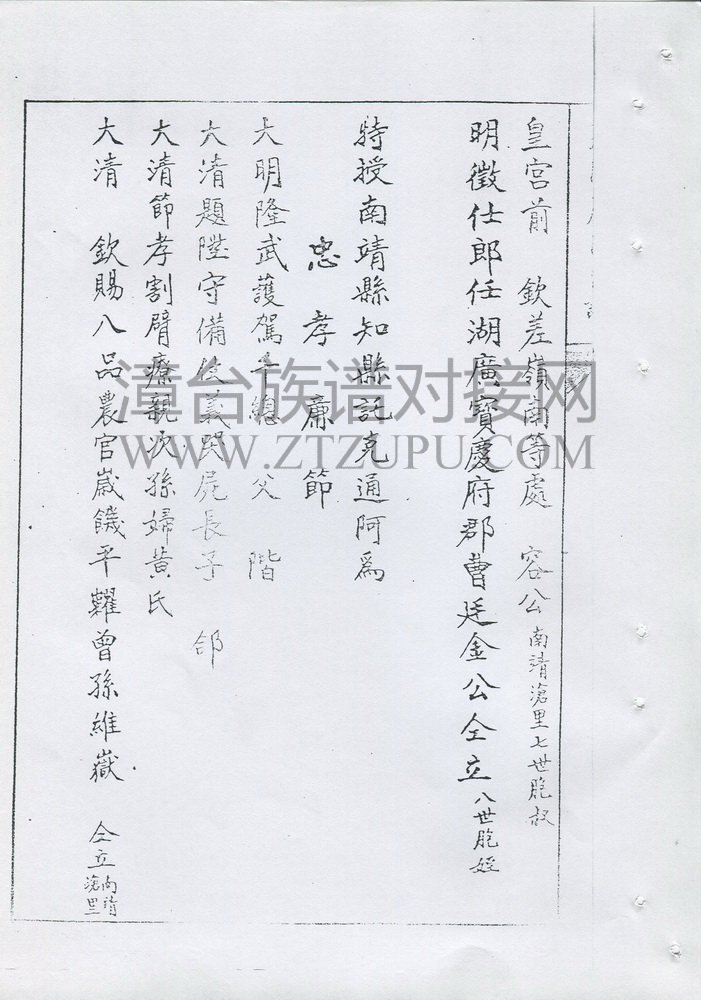 皇宮前 欽差嶺南等處 容公 南靖滄里七世胞叔
明徵仕郎任湖廣寶慶府郡曹廷金公仝立 八世胞姪
特授南靖縣知縣託克通阿為
忠孝廉節
大明隆武護駕千總 父 階
大清題陞守備 義 屍長子 郃
大清節孝割臂療親次孫婦黃氏
大清 欽賜八品農官歲饑平糶曾孫維嶽 仝立 南靖滄里
漳台族谱对接网
WWW.ZTZUPU.COM